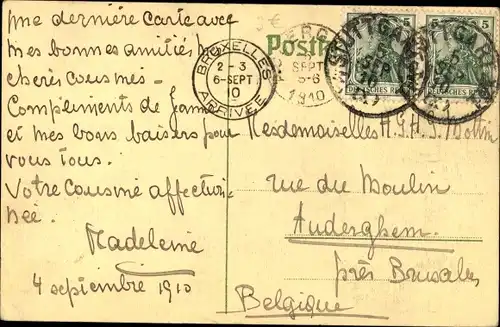 ma dernière carte avec
mes bonnes amitiés,
chères cousines –
Compliments de
et mes bons baisers pour
vous tous.
Votre cousine affection-
née.
Madeleine
4 septembre 1910
Postk
BRUXELLES
2 - 3
6 - SEPT
10
ARRIVÉE
SEPT
5-6
1910
STUTTGART
5
SEP
10
5 5
DEUTSCHES REICH
STUTTGART
5
SEP
10
5 5
DEUTSCHES REICH
Mesdemoiselles H. G. H. S.
rue du Moulin
Auderghem.
près Bruxelles
Belgique